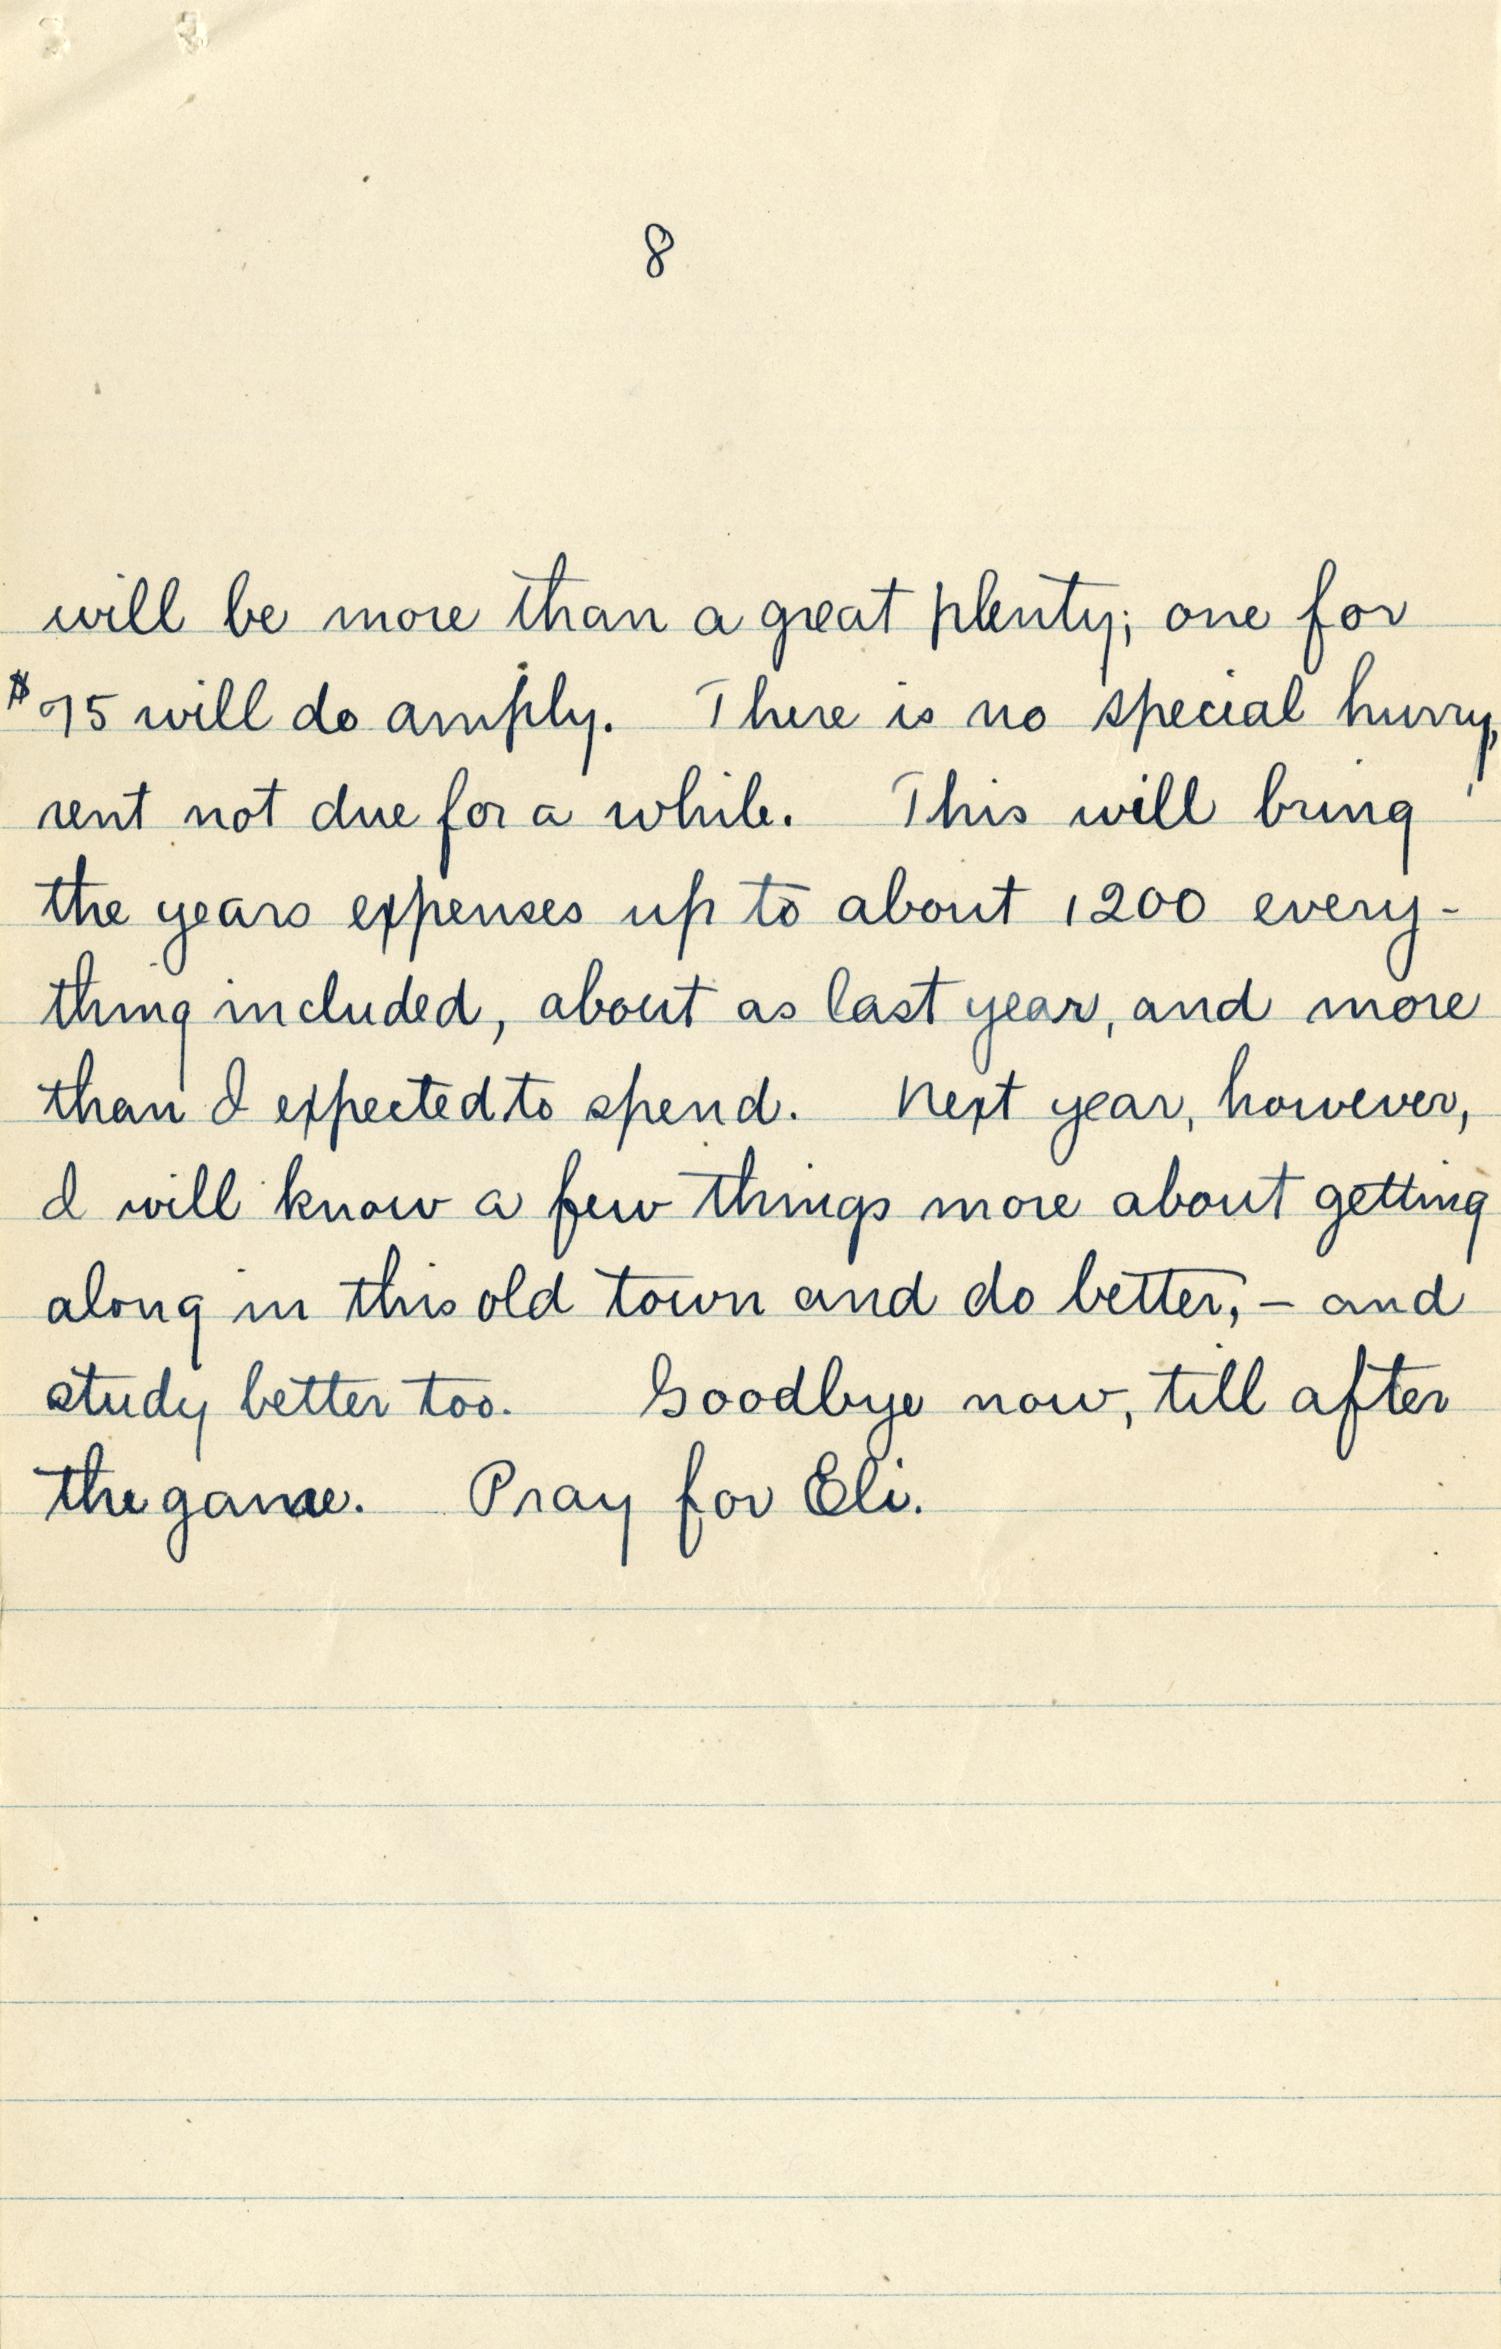 8
will be more than a great plenty; one for
$75 will do amply. There is no special hurry,
rent not due for a while. This will bring
the years expenses up to about 1200 every-
thing included, about as last year, and more
than I expected to spend. Next year, however,
I will know a few things more about getting
along in this old town and do better, – and
study better too. Goodbye now, till after
the game. Pray for Eli.